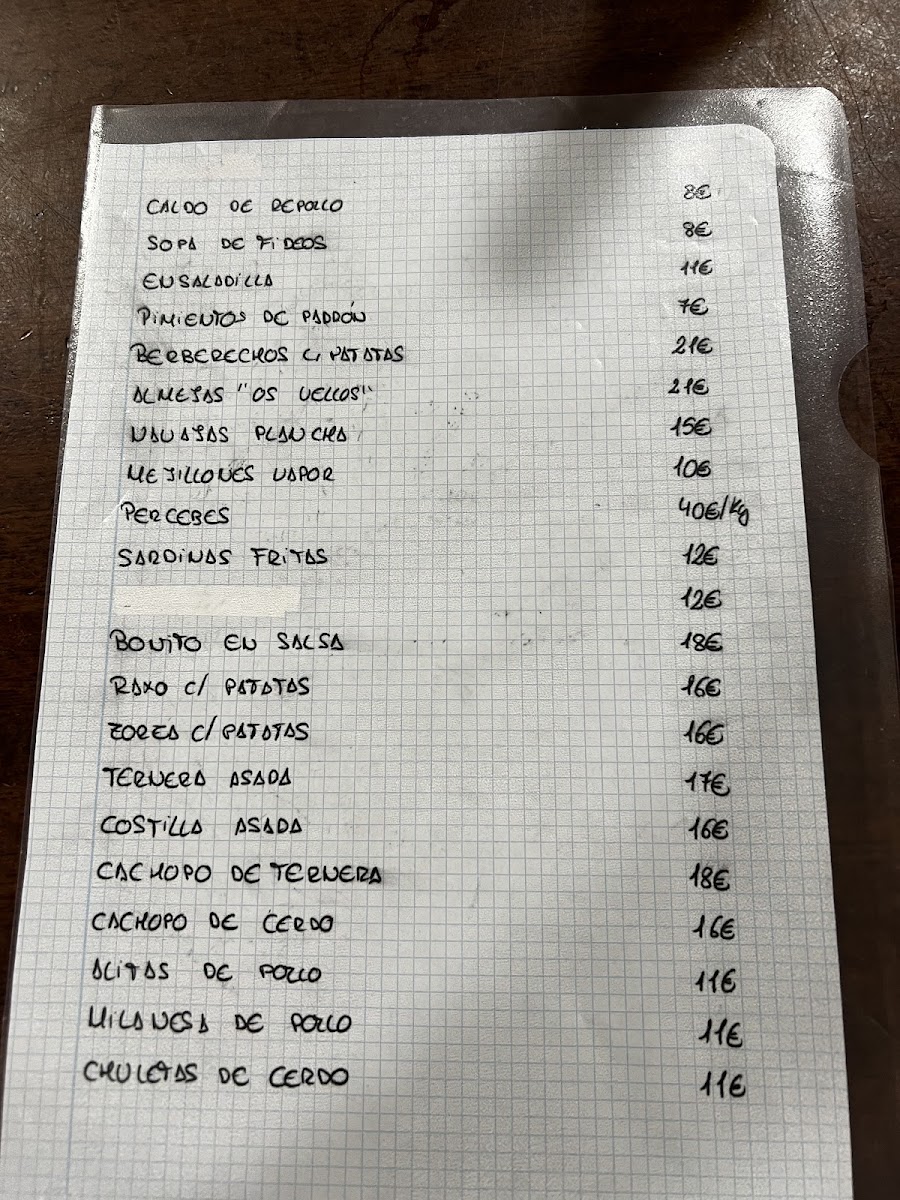 CALDO DE REPOLLO 8€
SOPA DE FIDEOS 8€
ENSALADILLA 11€
PIMIENTOS DE PADRÓN 7€
BERBERECHOS C/ PATATAS 21€
ALMEJAS "OS VELLOS" 21€
NAVAJAS PLANCHA 15€
MEJILLONES VAPOR 10€
PERCEBES 40€/Kg
SARDINAS FRITAS 12€
12€
BONITO EN SALSA 18€
RAXO C/ PATATAS 16€
ZORZA C/ PATATAS 16€
TERNERA ASADA 17€
COSTILLA ASADA 16€
CACHOPO DE TERNERA 18€
CACHOPO DE CERDO 16€
ALITAS DE POLLO 11€
MILANESA DE POLLO 11€
CHULETAS DE CERDO 11€